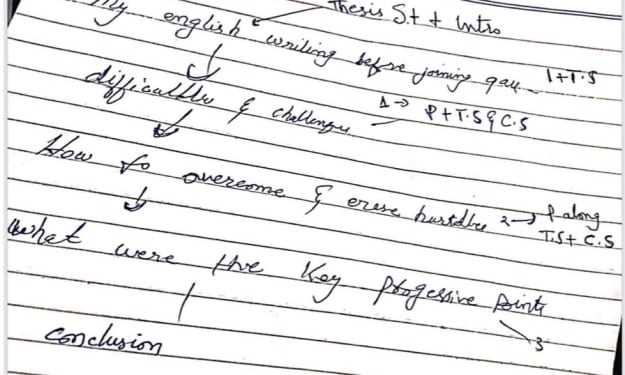 Thesis S.t + Intro
My english writing before joining qau 1+T.S
difficultlies & challenges 1 → P+T.S & C.S
How to overcome & erese hurstdles 2 → P along
T.S + C.S
what were the Key progessive points
3
conclusion